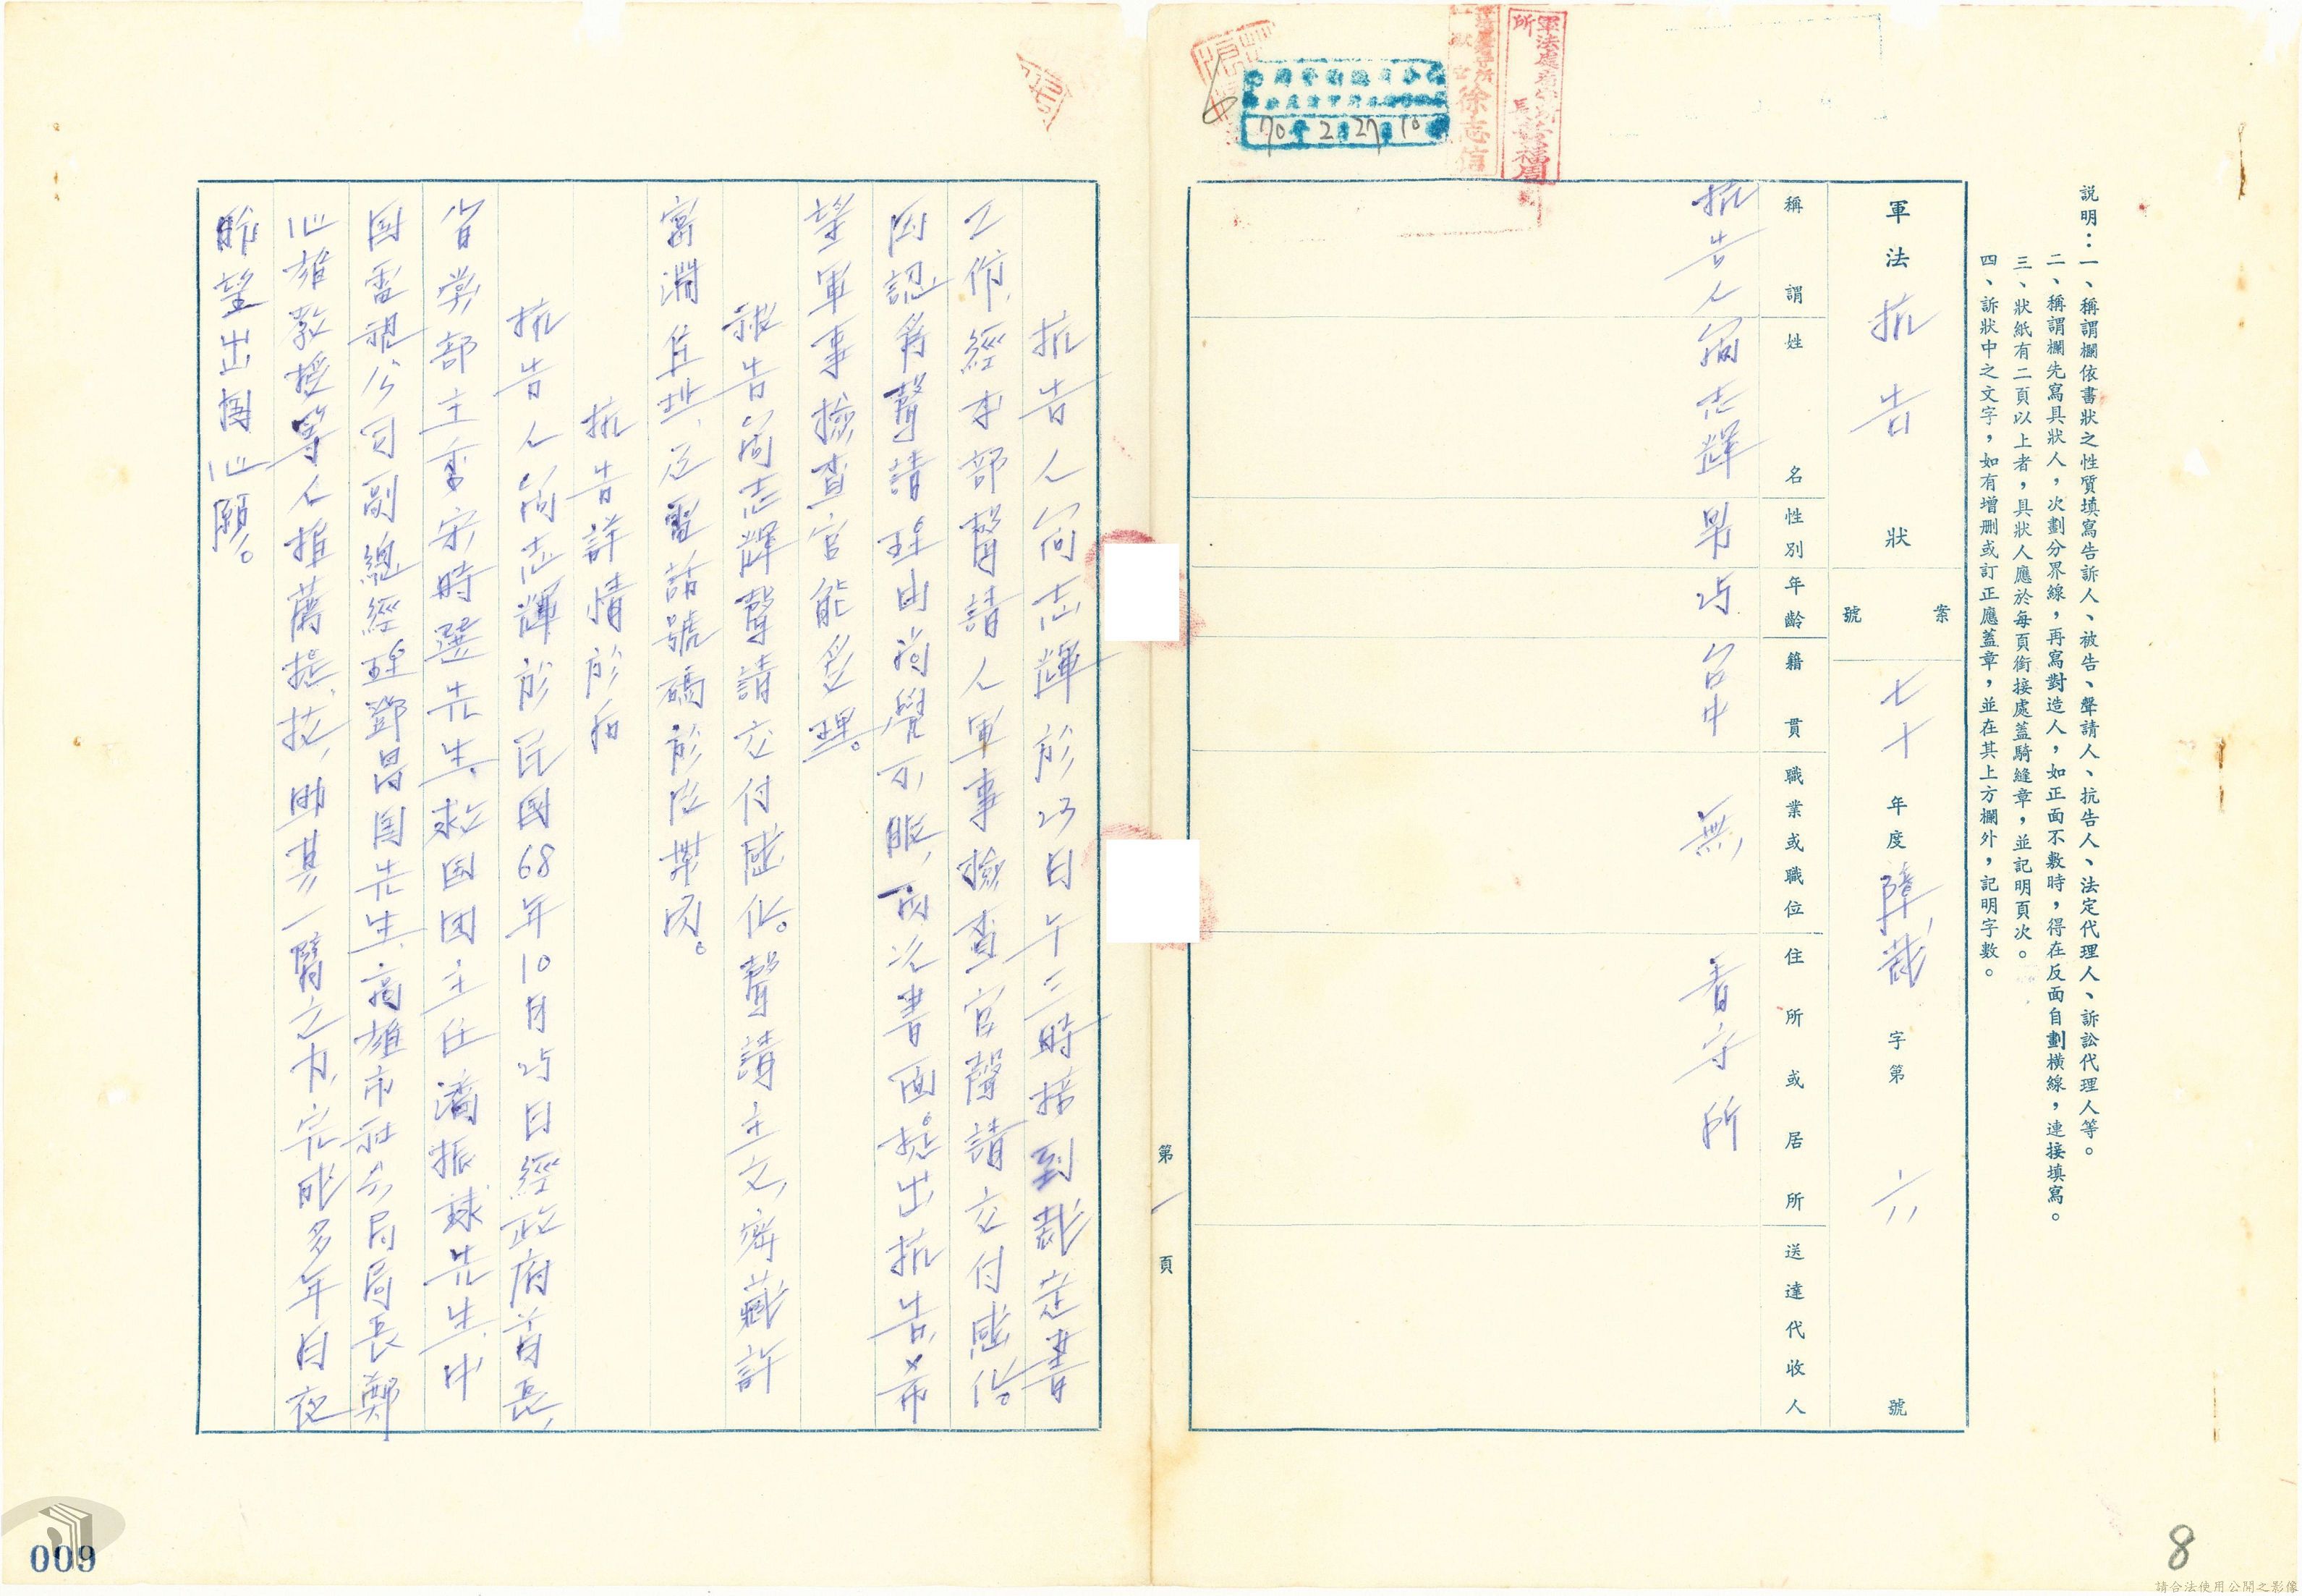 說明：一、稱謂欄依書狀之性質填寫告訴人、被告、聲請人、抗告人、法定代理人、訴訟代理人等。
二、稱謂欄先寫具狀人，次劃分界線，再寫對造人，如正面不敷時，得在反面自劃橫線，連接填寫。
三、狀紙有二頁以上者，具狀人應於每頁銜接處蓋騎縫章，並記明頁次。
四、訴狀中之文字，如有增刪或訂正應蓋章，並在其上方欄外，記明字數。
軍法抗告狀
案號
七十年度障裁字第六號
稱謂
姓名
性別
年齡
籍貫
職業或職位
住所或居所
送達代收人
抗告人 簡志輝 男 25 台中 無 看守所
70 2 27 10
徐志信
第一頁
抗告人簡志輝於23日午三時接到裁定書
工作，經本部聲請人軍事檢查官聲請交付感化。
因認為聲請理由尚覺不服，兩次書面提出抗告，希
望軍事檢查官能受理。
報告簡志輝聲請交付感化。聲請主文，窩藏許
富淵住址，及電話號碼於階業內。
抗告詳情於后
抗告人簡志輝於民國68年10月25日經政府首長，
省黨部主委宋時選先生，救国团主任潘振球先生，中
国電視公司副總經理鄧昌国先生，高雄市社会局局長鄭
心雄教授等人推薦提拔，助其一臂之力，完成多年日夜
盼望出国心願。
009
8
請合法使用公開之影像